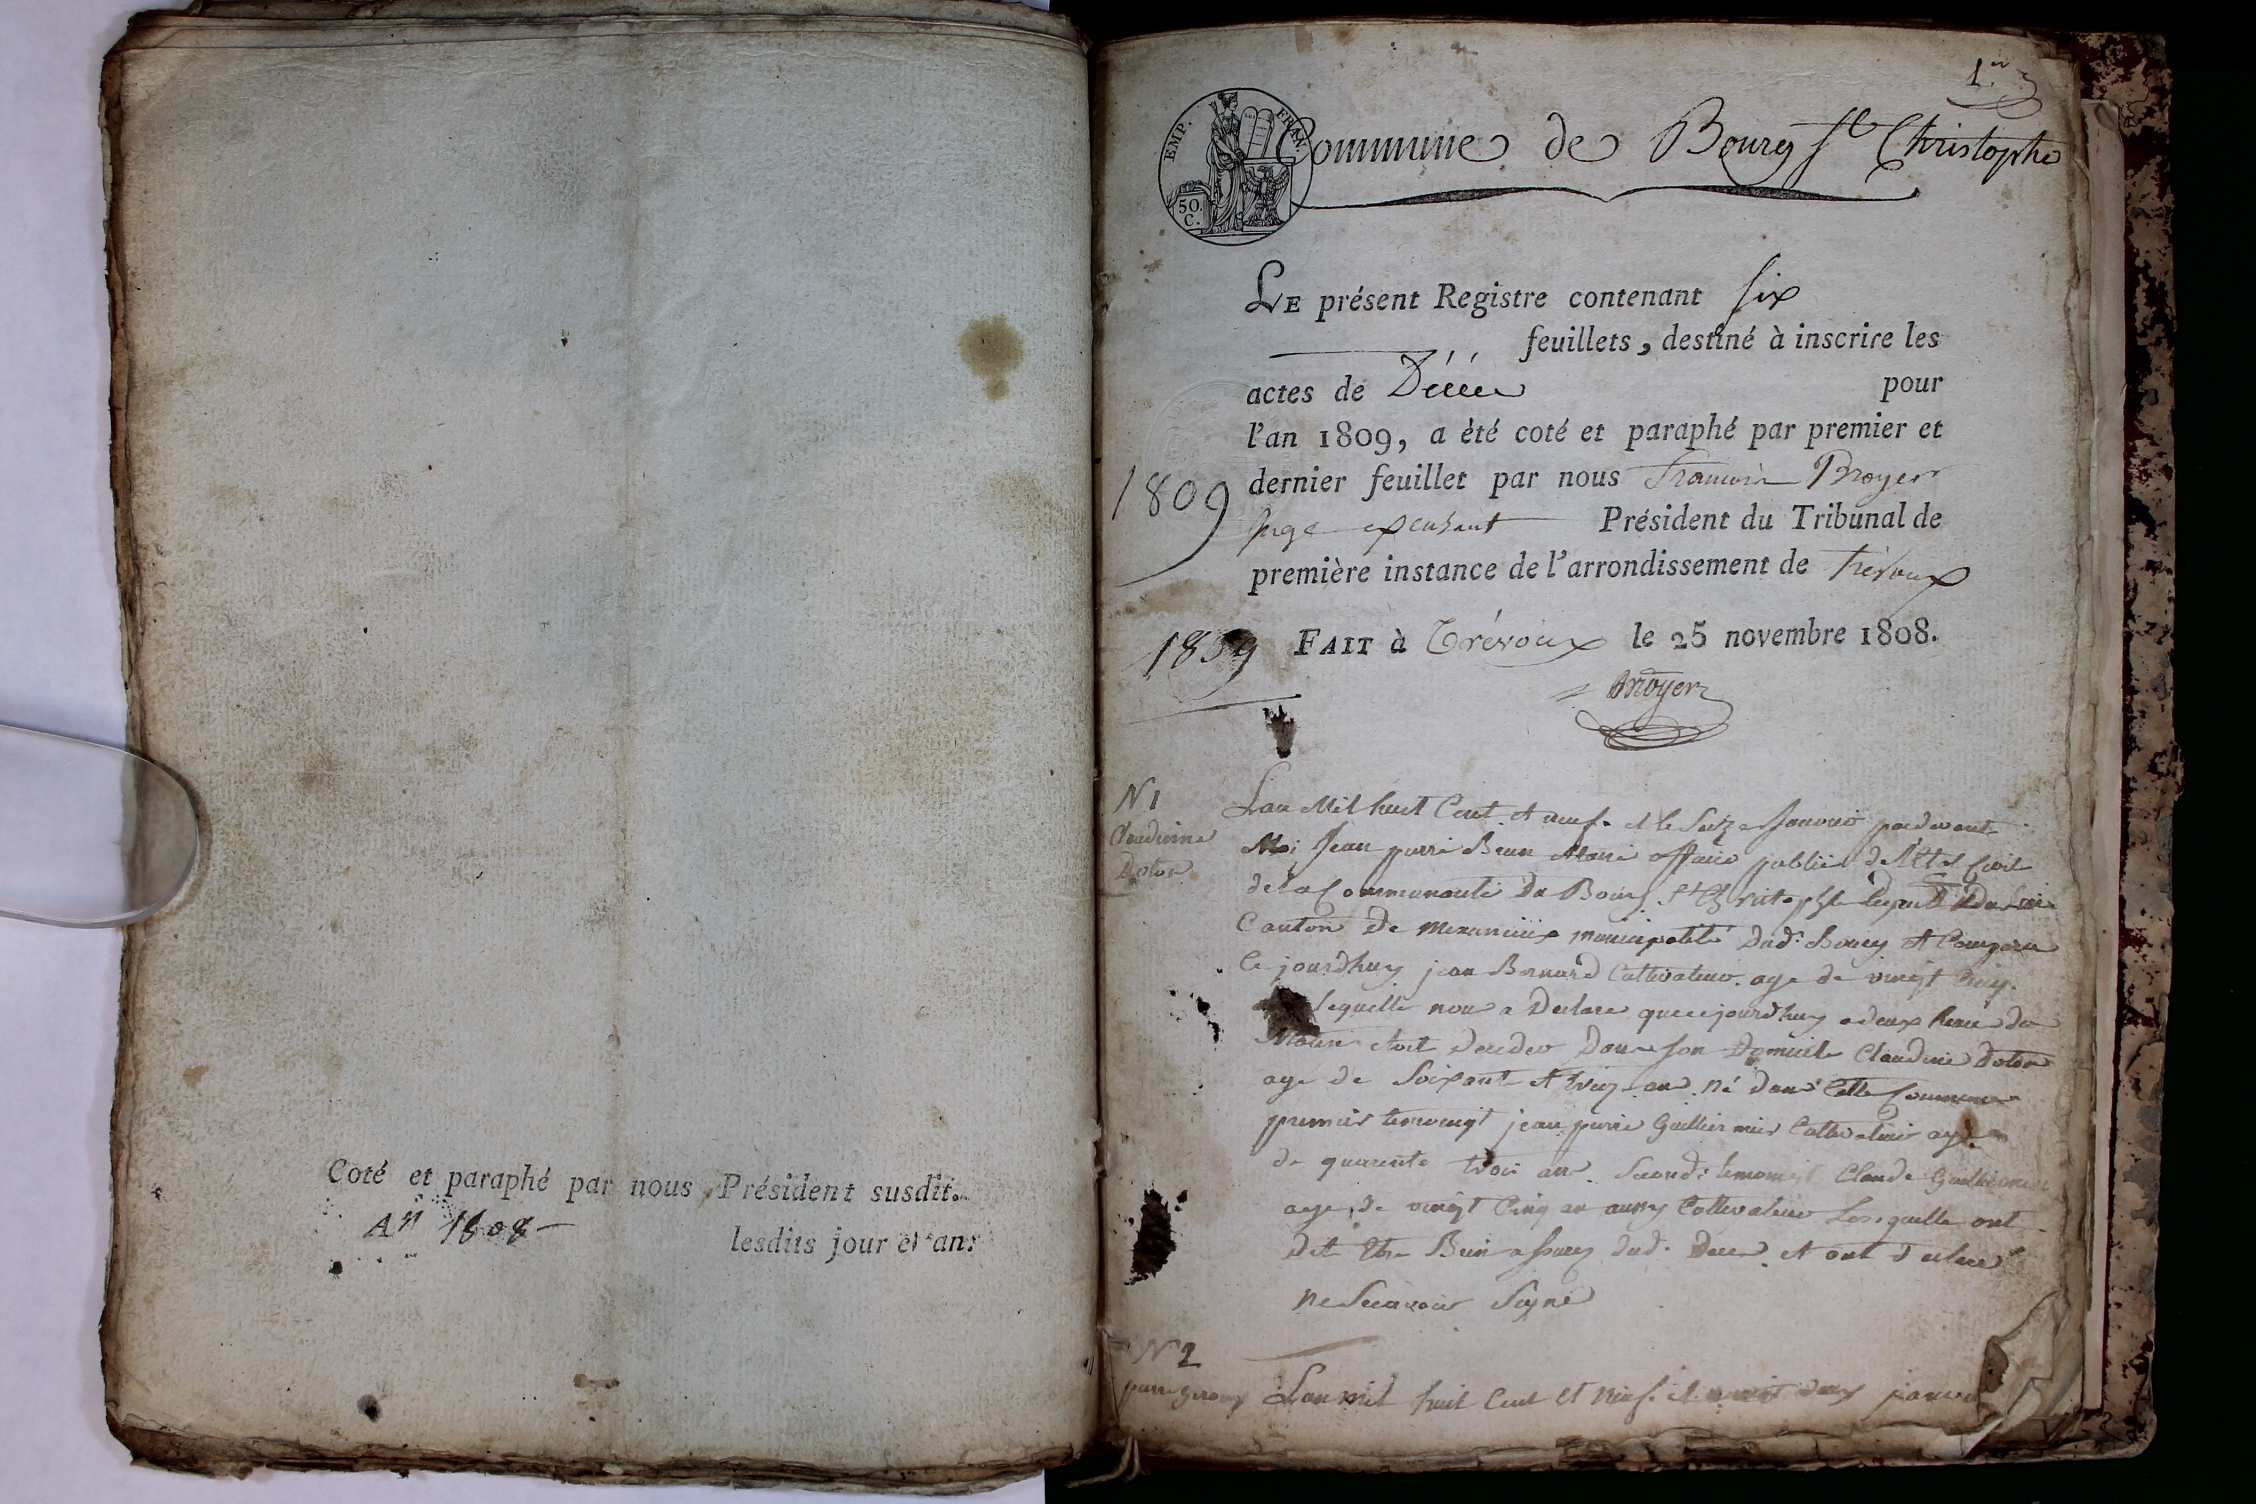 Coté et paraphé par nous, Président susdit.
An 1808
lesdits jour et an.
1er
EMP. FRAN.
50.
C.
Commune de Bourg St Christophe
LE présent Registre contenant six
feuillets, destiné à inscrire les
actes de Décès pour
l'an 1809, a été coté et paraphé par premier et
dernier feuillet par nous François Broyer
Juge exerceant Président du Tribunal de
première instance de l'arrondissement de Trévoux
1809
FAIT à Trévoux le 25 novembre 1808.
1809
Broyer
N 1
Claudine
Dotor
Lan Mil huit Cent et neuf et le Seize Janvier pardevant
Moi Jean pierre Brun Maire officie public de létat Civil
de la Communauté du Bourg St Christophe
Canton de meximieux municipalité dud. Bourg et Comparu
Ce jourdhuy jean Bernard Cultivateur age de vingt Cinq
lequelle nou a Declare que ce jourdhuy a deux heure du
Matin etoit Decedeo Dans son Domicile Claudine Dotor
age de Soixante et treiz an né dans Cette Commune
premier temoingt jean pierre Guillermier Cultivateur age
de quarente trois an. Second temoingt Claude Guillermier
age de vingt Cinq an aussy Cultivateur Lesquelle ont
Dit Etre Bien assure dud. Deces et ont declare
ne Scavoir Signe
N 2
pierre
Lan mil huit Cent et neuf et vingt deux janvier